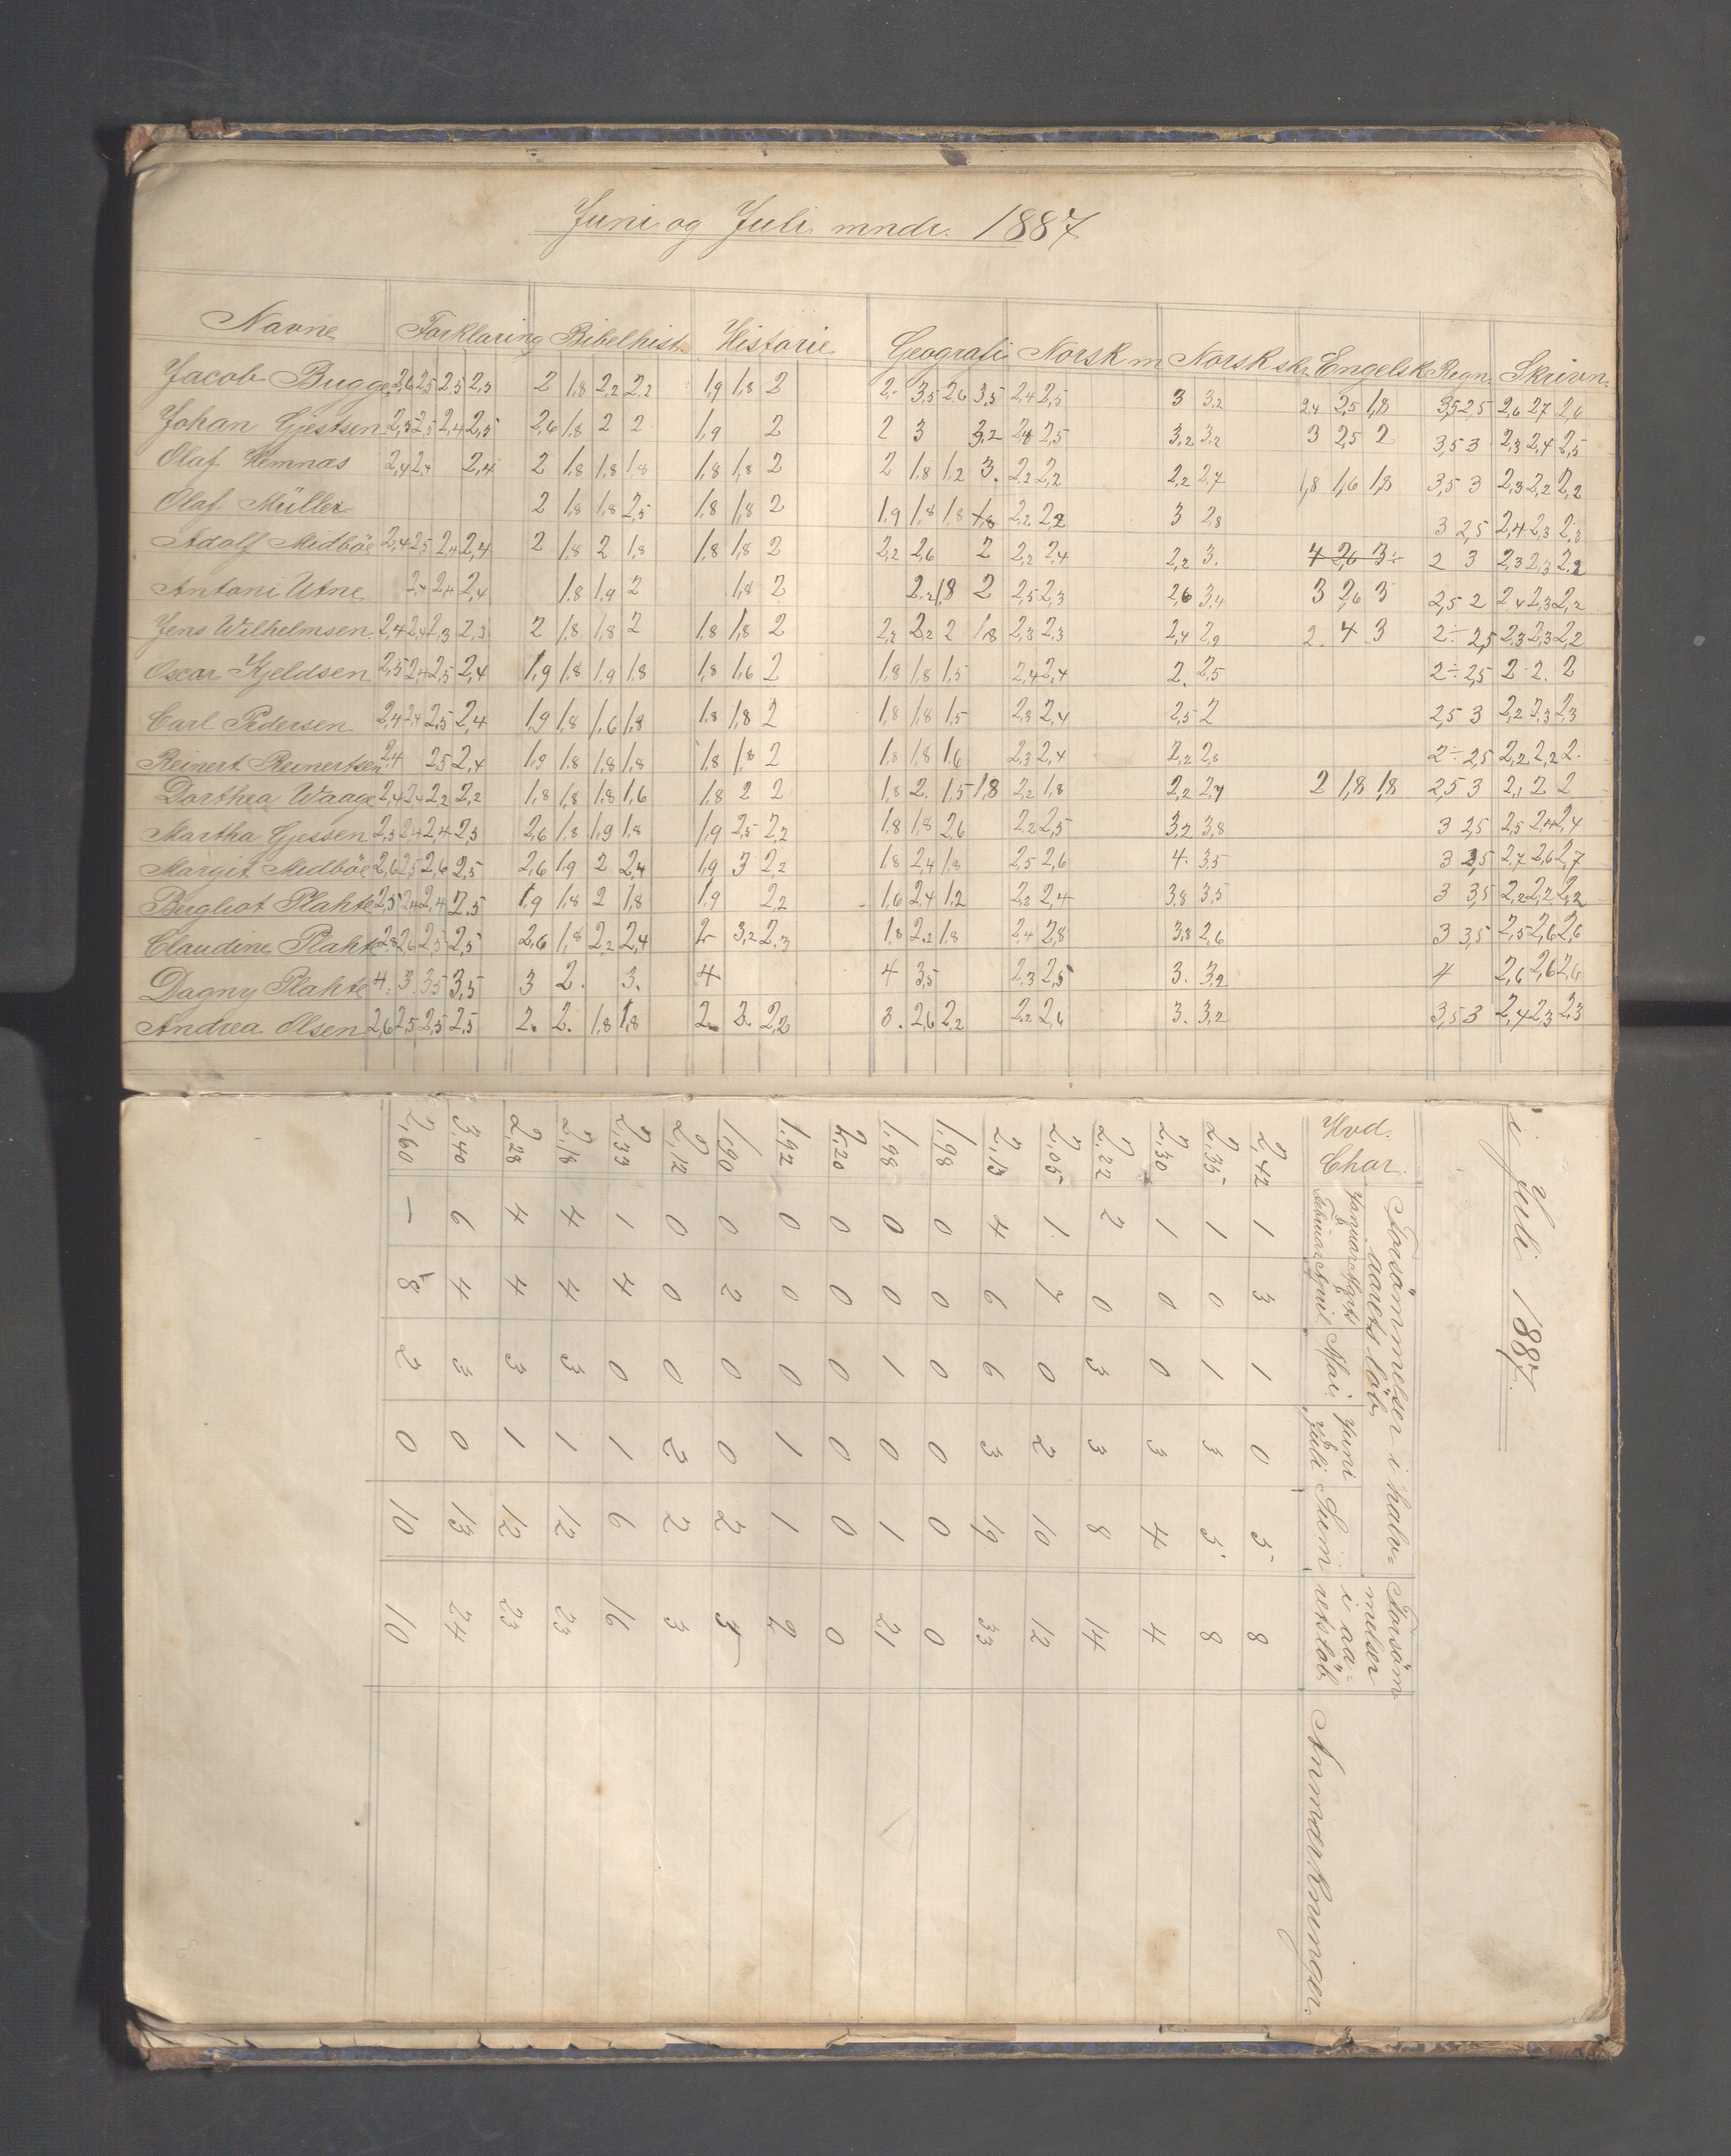 Juni og Juli mndr. 1887
Navne Forklaring Bibelhist. Historie Geografi Norsk m Norsk skr Engelsk Regn. Skrivn.
Jacob Bugge 2,6 2,5 2,5 2,5 2 1,8 2,2 2,2 1,9 1,8 2 2- 3,5 2,6 3,5 2,4 2,5 3 3,2 2,4 2,5 1,8 3,5 2,5 2,6 2,7 2,6
Johan Gjestsen 2,5 2,5 2,4 2,5 2,6 1,8 2 2 1,9 2 2 3 3,2 2,4 2,5 3,2 3,2 3 2,5 2 3,5 3 2,3 2,4 2,5
Olaf Hemnæs 2,4 2,4 2,4 2 1,8 1,8 1,8 1,8 1,8 2 2 1,8 1,2 3. 2,2 2,2 2,2 2,7 1,8 1,6 1,8 3,5 3 2,3 2,2 2,2
Olaf Müller 2 1,8 1,8 2,5 1,8 1,8 2 1,9 1,8 1,8 1,8 2,2 2,2 3 2,8 3 2,5 2,4 2,3 2,3
Adolf Midböe 2,4 2,5 2,4 2,4 2 1,8 2 1,8 1,8 1,8 2 2,2 2,6 2 2,2 2,4 2,2 3. 4 2,6 3÷ 2 3 2,3 2,3 2,2
Antoni Utne 2,4 2,4 2,4 1,8 1,9 2 1,8 2 2,2 1,8 2 2,5 2,3 2,6 3,4 3 2,6 3 2,5 2 2,4 2,3 2,2
Jens Wilhelmsen 2,4 2,4 2,3 2,3 2 1,8 1,8 2 1,8 1,8 2 2,2 2,2 2 1,8 2,3 2,3 2,4 2,9 2. 4 3 2÷ 2,5 2,3 2,3 2,2
Oscar Kjeldsen 2,5 2,4 2,5 2,4 1,9 1,8 1,9 1,8 1,8 1,6 2 1,8 1,8 1,5 2,4 2,4 2. 2,5 2÷ 2,5 2 2. 2
Carl Pedersen 2,4 2,4 2,5 2,4 1,9 1,8 1,6 1,8 1,8 1,8 2 1,8 1,8 1,5 2,3 2,4 2,5 2 2,5 3 2,2 2,3 2,3
Reinert Reinertsen 2,4 2,5 2,4 1,9 1,8 1,8 1,8 1,8 1,8 2 1,8 1,8 1,6 2,3 2,4 2,2 2,8 2÷ 2,5 2,2 2,2 2.
Dorthea Waage 2,4 2,4 2,2 2,2 1,8 1,8 1,8 1,6 1,8 2 2 1,8 2. 1,5 1,8 2,2 1,8 2,2 2,7 2 1,8 1,8 2,5 3 2,1 2 2
Martha Gjessen 2,5 2,4 2,4 2,5 2,6 1,8 1,9 1,8 1,9 2,5 2,2 1,8 1,8 2,6 2,2 2,5 3,2 3,8 3 2,5 2,5 2,4 2,4
Margit Midböe 2,6 2,5 2,6 2,5 2,6 1,9 2 2,4 1,9 3 2,2 1,8 2,4 1,8 2,5 2,6 4. 3,5 3 2,5 2,7 2,6 2,7
Bergliot Plahte 2,5 2,4 2,4 2,5 1,9 1,8 2 1,8 1,9 2,2 1,6 2,4 1,2 2,2 2,4 3,8 3,5 3 3,5 2,2 2,2 2,2
Claudine Plahte 2,8 2,6 2,5 2,5 2,6 1,8 2,2 2,4 2- 3,2 2,3 1,8 2,2 1,8 2,4 2,8 3,8 2,6 3 3,5 2,5 2,6 2,6
Dagny Plahte 4. 3. 3,5 3,5 3 2. 3. 4 4 3,5 2,3 2,5 3. 3,2 4 2,6 2,6 2,6
Andrea Olsen 2,6 2,5 2,5 2,5 2. 2. 1,8 1,8 2. 3. 2,2 3. 2,6 2,2 2,2 2,6 3. 3,2 3,5 3 2,4 2,3 2,3
i Juli 1887.
Hvd. Char. Forsömmelser i halv=
aarets löb
Januar & Februar Marts & April Mai Juni & Juli Sum
Forsöm
melser
i aa=
rets löb
Anmærkninger.
2,42 1 3 1 0 5 8
2,35 1 0 1 3 5. 8
2,30 1 0 0 3 4 4
2,22 2 0 3 3 8 14
2,05 1. 7 0 2 10 12
2,13 4 6 6 3 19 33
1,98 0 0 0 0 0 0
1,98 0 0 1 0 1 21
2,20 0 0 0 0 0 0
1,92 0 0 0 1 1 2
1,90 0 2 0 0 2 3
2,12 0 0 0 2 2 3
2,33 1 4 0 1 6 16
2,18 4 4 3 1 12 23
2,28 4 4 3 1 12 23
3,40 6 4 3 0 13 24
2,60 - 8 2 0 10 10